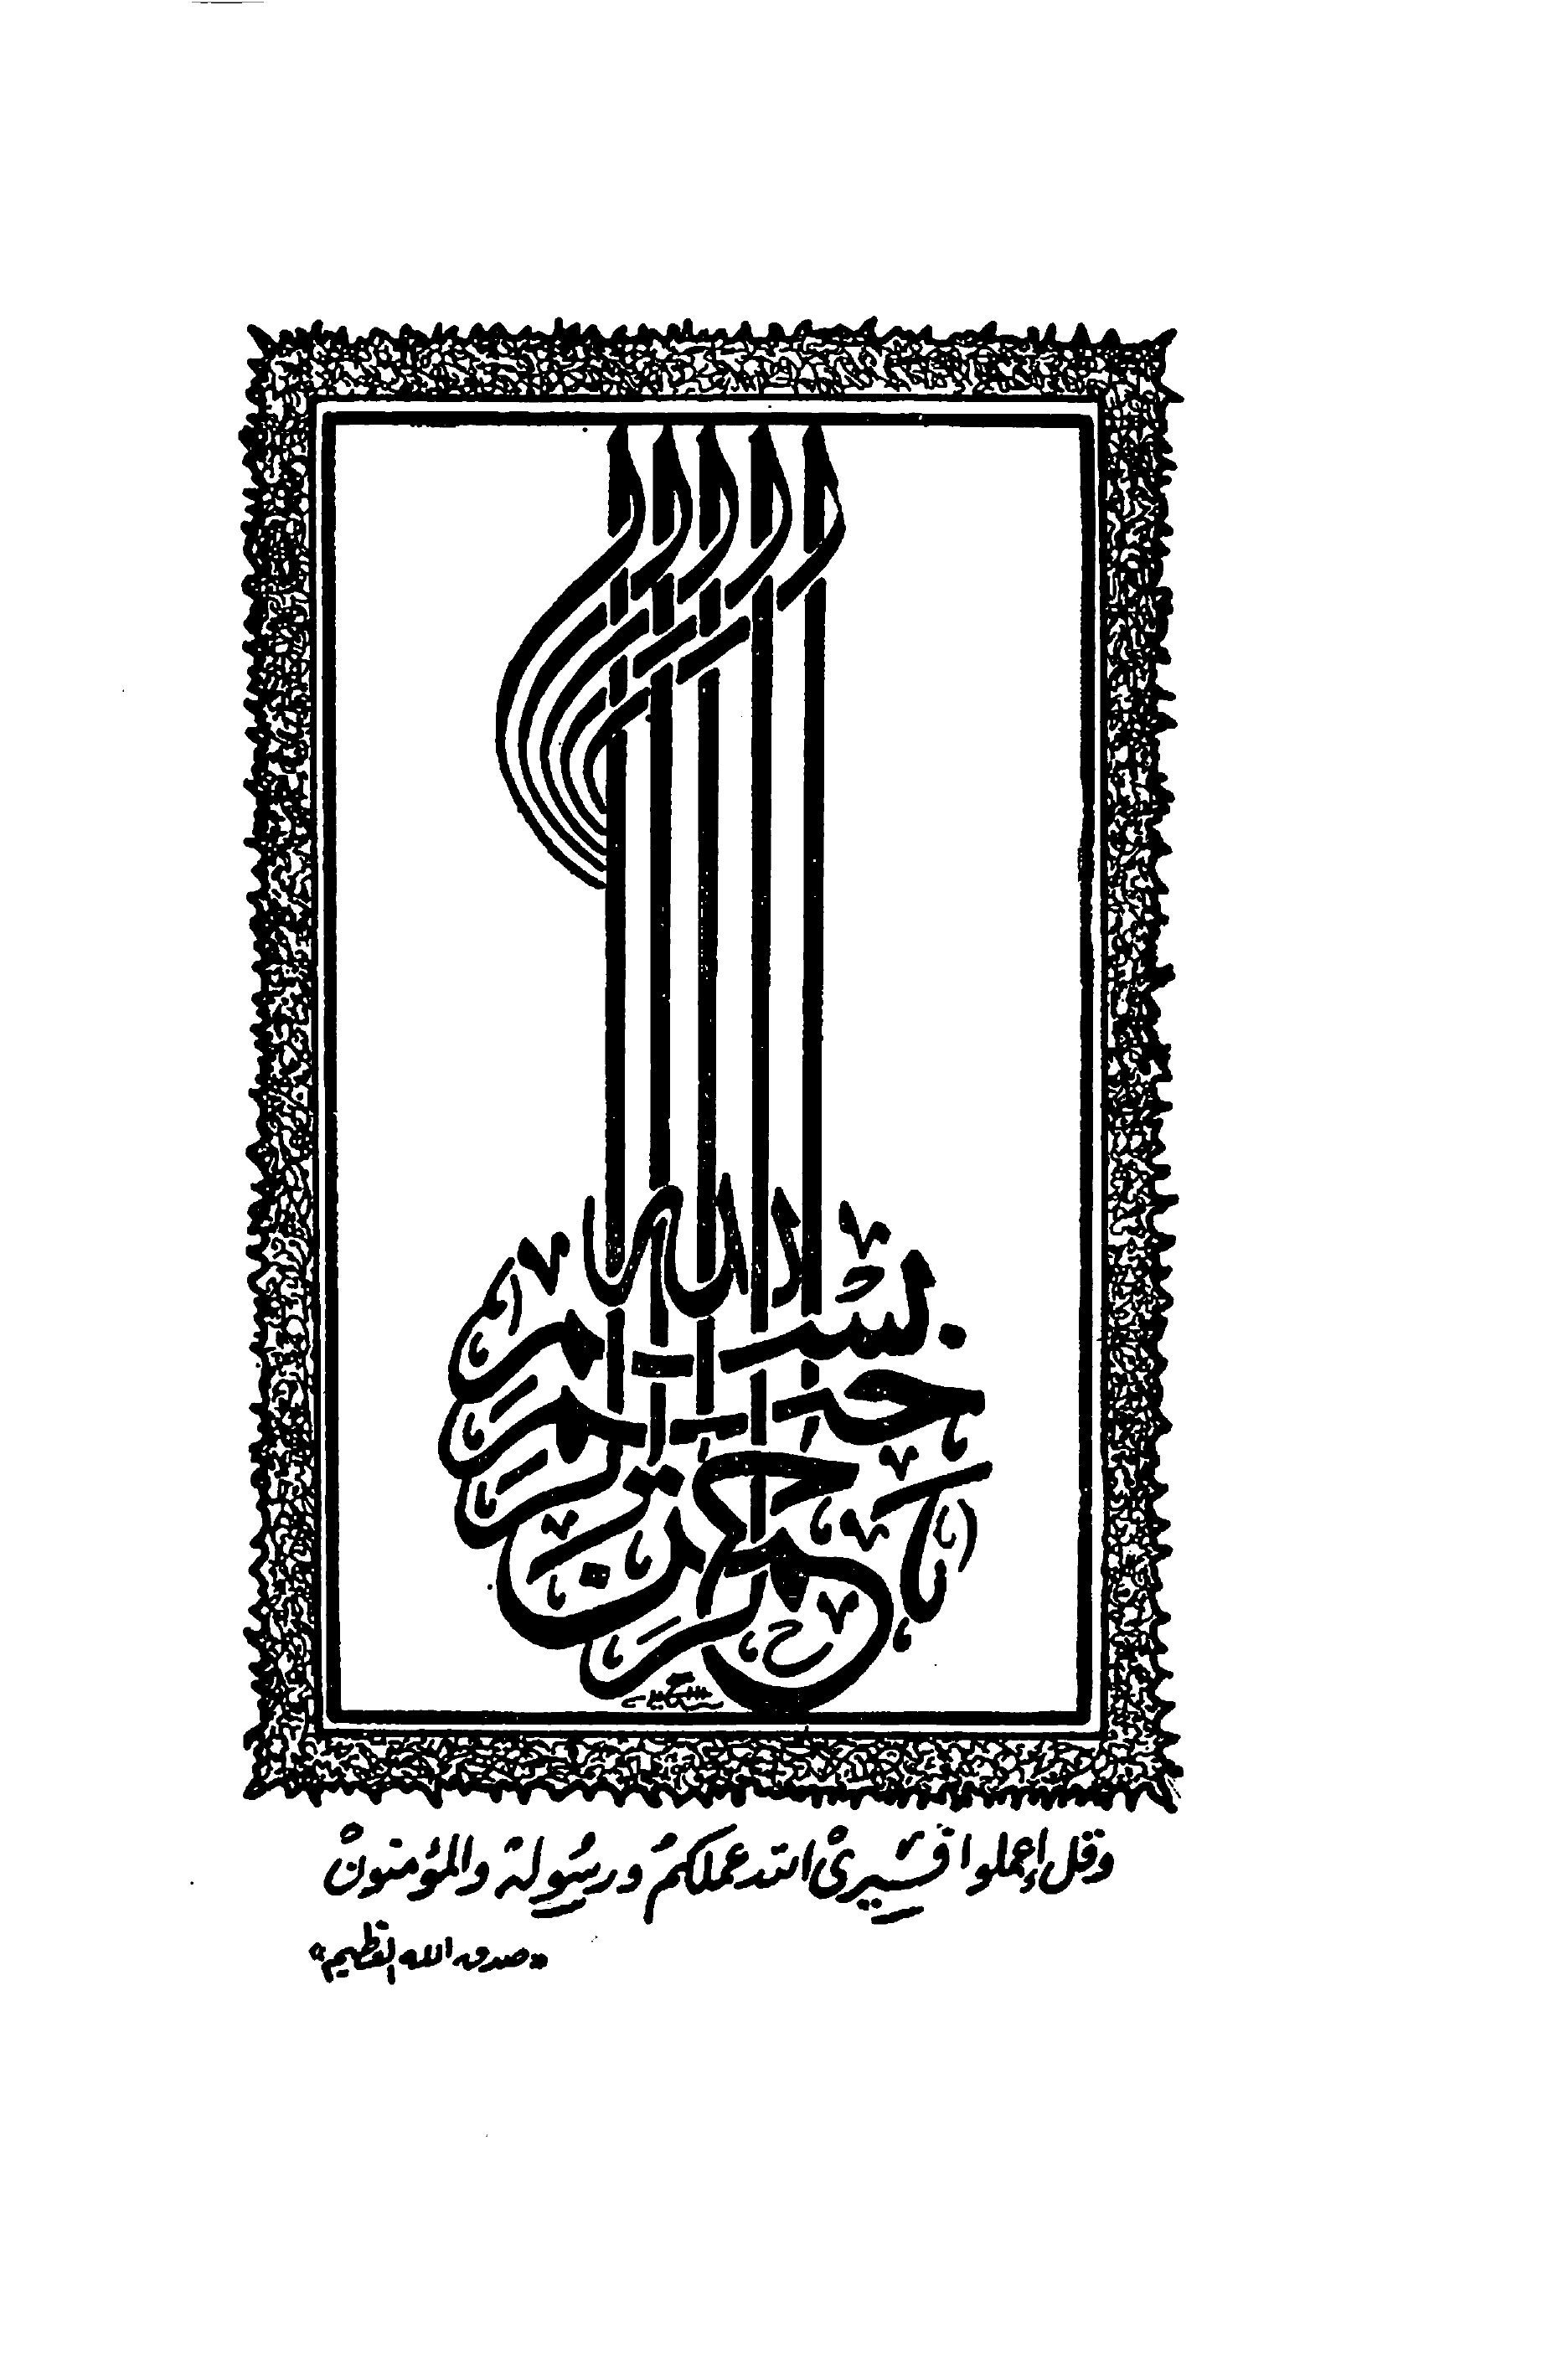 بسم الله الرحمن الرحيم
وقل إعملوا فسيرى الله عملكم ورسوله والمؤمنون
«صدق الله العظيم»